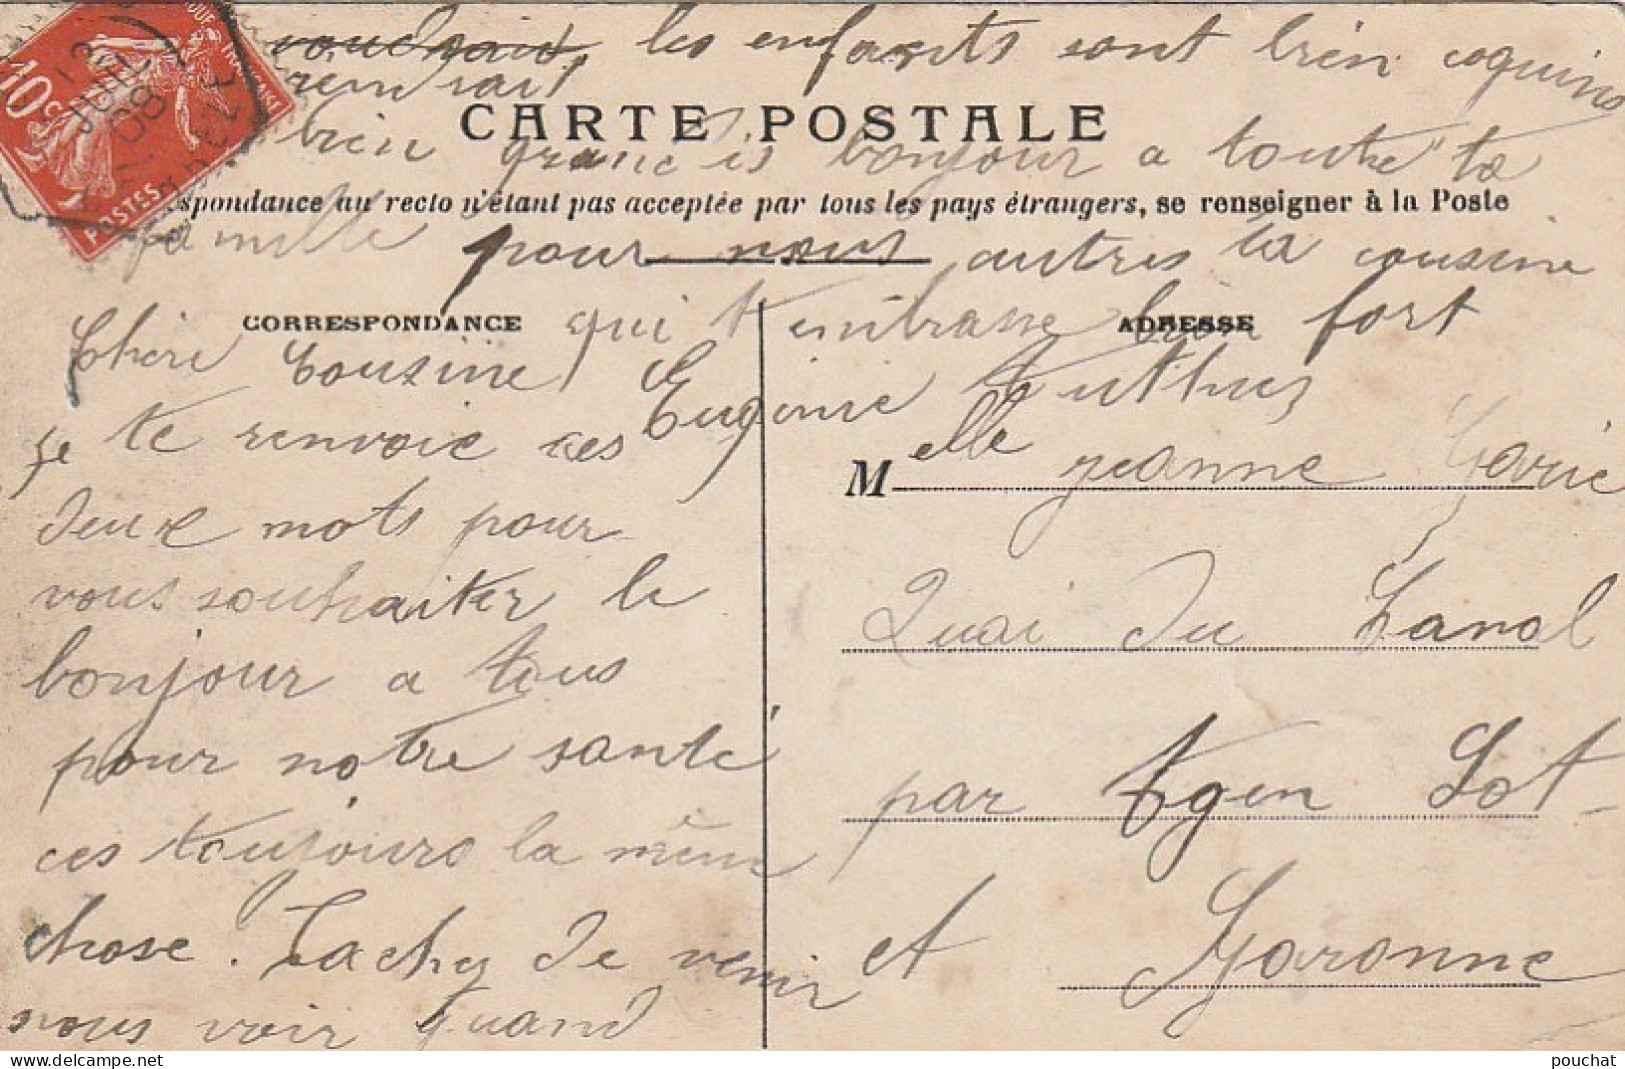 voudrais, les enfants sont bien coquins
rendrait
CARTE POSTALE
bien bonjour a toute ta
spondance au recto n'étant pas acceptée par tous les pays étrangers, se renseigner à la Poste
famille pour nous autres ta cousine
CORRESPONDANCE
qui t'embrasse bien fort
ADRESSE
Eugenie
Chère Cousine
je te renvoie ces
deux mots pour
vous souhaiter le
bonjour a tous
pour notre santé
ces toujours la même
chose. Tachy de venir
nous voir quand
Melle Jeanne
Quai du Canal
par Agen Lot-
et Garonne
10c
POSTES
pouchat